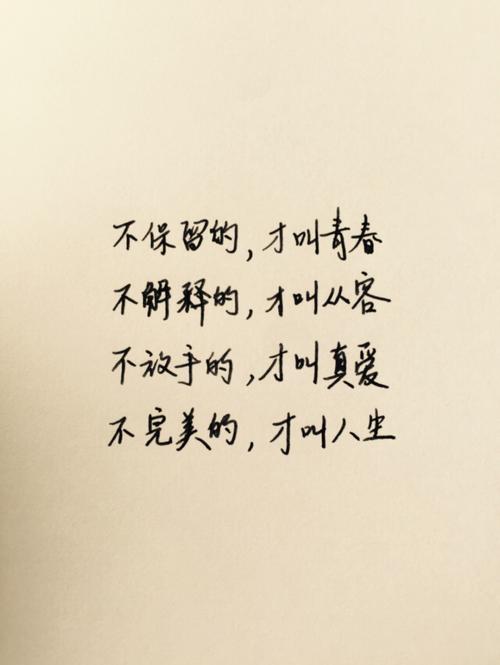 不保留的,才叫青春
不解释的,才叫从容
不放手的,才叫真爱
不完美的,才叫人生